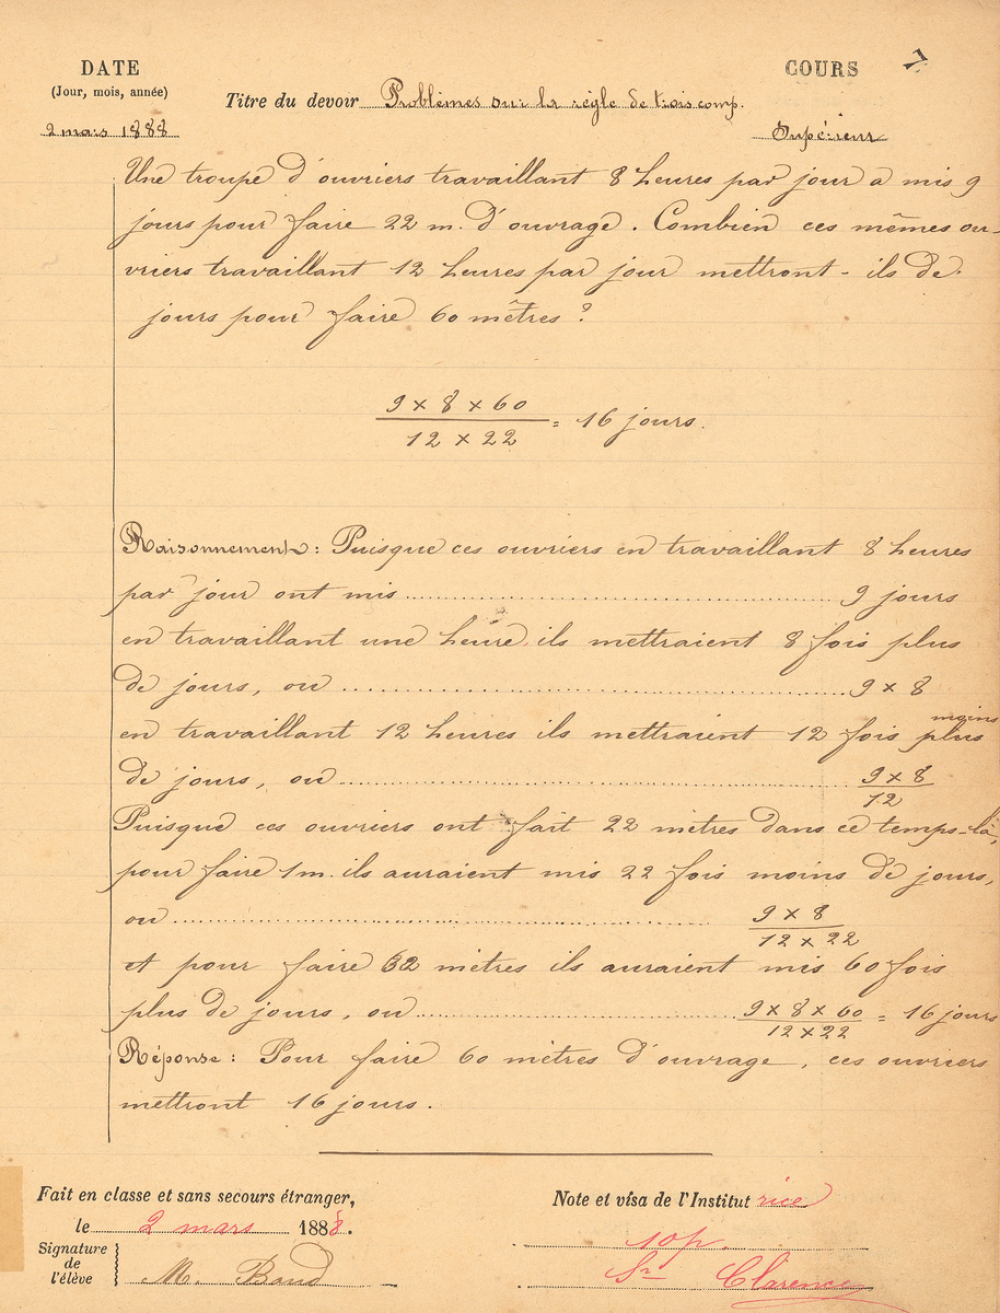 DATE
COURS
7
(Jour, mois, année)
Titre du devoir Problèmes sur la règle de trois comp.
2 mars 1888
Supérieur
Une troupe d'ouvriers travaillant 8 heures par jour a mis 9
jours pour faire 22 m. d'ouvrage. Combien ces mêmes ou-
vriers travaillant 12 heures par jour mettront-ils de
jours pour faire 60 mètres ?
9 × 8 × 60
= 16 jours.
12 × 22
Raisonnement : Puisque ces ouvriers en travaillant 8 heures
par jour ont mis .......... 9 jours
en travaillant une heure, ils mettraient 8 fois plus
de jours, ou .......... 9 × 8
moins
en travaillant 12 heures ils mettraient 12 fois plus
de jours, ou .......... 9 × 8
12
Puisque ces ouvriers ont fait 22 mètres dans ce temps-là,
pour faire 1 m. ils auraient mis 22 fois moins de jours,
ou .......... 9 × 8
12 × 22
et pour faire 62 mètres ils auraient mis 60 fois
plus de jours, ou .......... 9 × 8 × 60 = 16 jours
12 × 22
Réponse : Pour faire 60 mètres d'ouvrage, ces ouvriers
mettront 16 jours.
Fait en classe et sans secours étranger,
le 2 mars 1888.
Signature
de
l'élève
M. Baud
Note et visa de l'Institutrice
10 p.
Sr Clarence